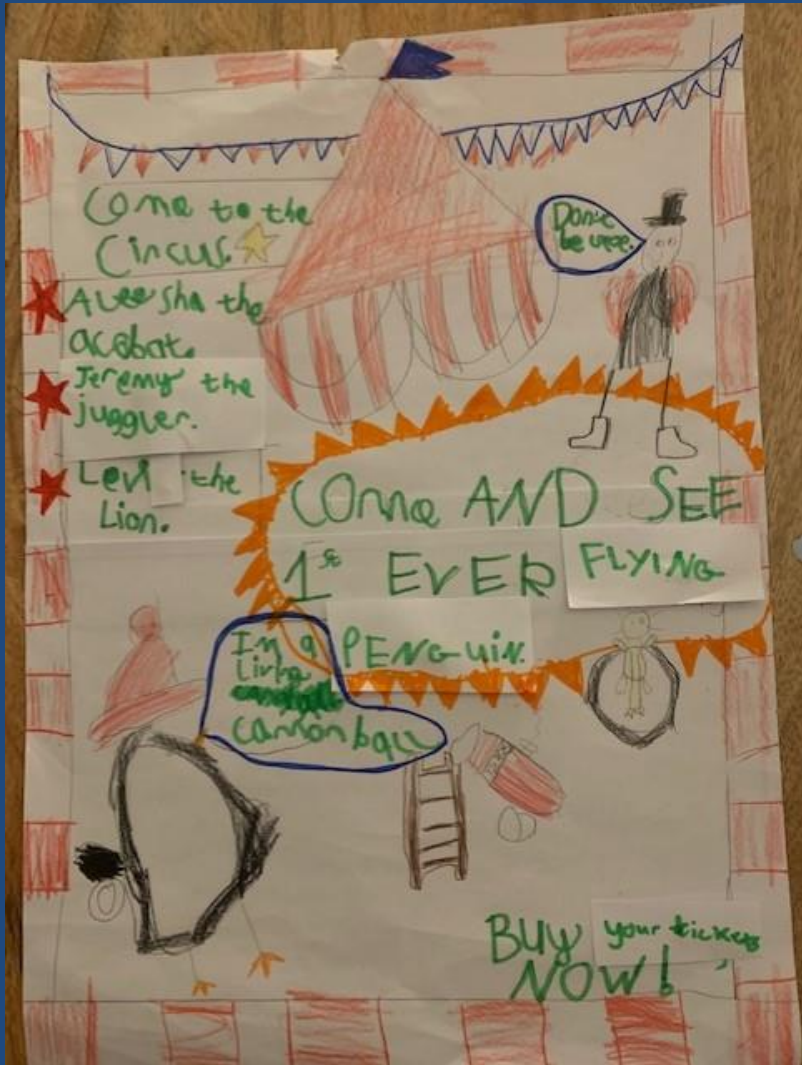 Come to the
Circus.
Aleesha the
acobat.
Jeremy the
juggler.
Levi the
Lion.
Don't
be
COme AND SEE
1st EVER FLYING
PENGUiN.
Im a
living
cannonball
BUY your tickets
NOW!